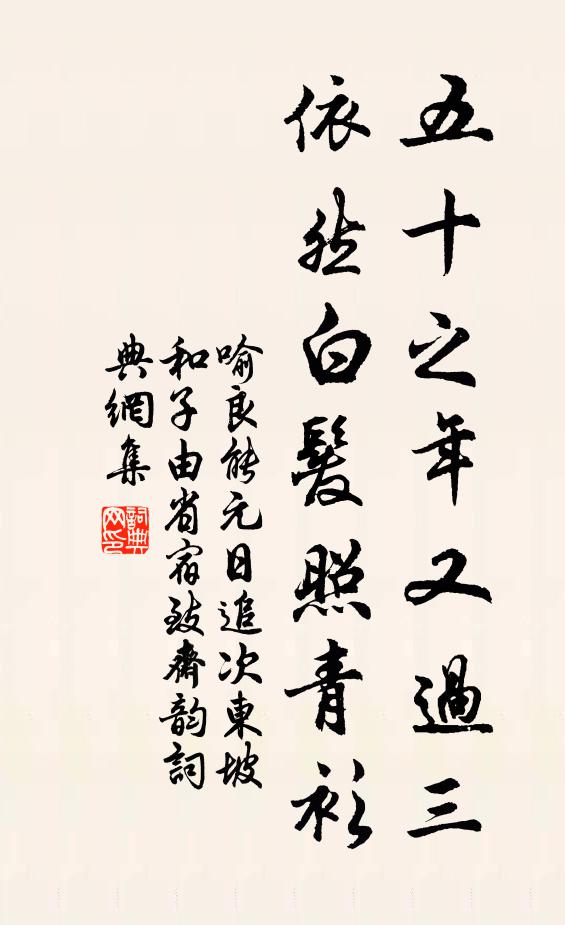 五十之年又過三
依然白髮照青衫
喻良能元日追次東坡
和子由省宿致齋韵詞
典網集
詞典网印